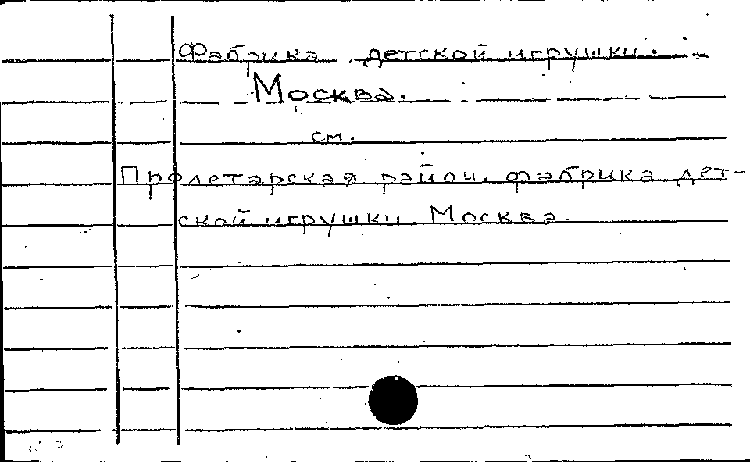 Фабрика детской игрушки.
Москва.
см.
Пролетарская район. фабрика дет-
ской игрушки. Москва.